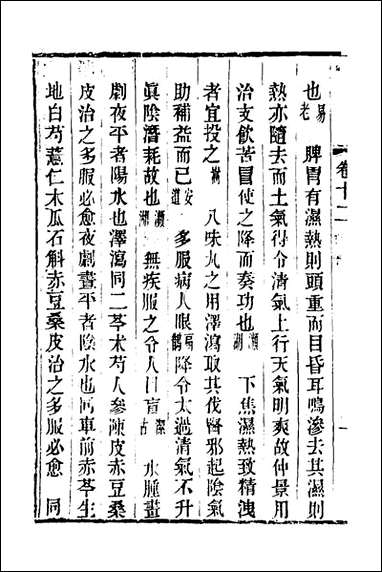 也易老 脾胃有濕熱則頭重而目昏耳鳴滲去其濕則
熱亦隨去而土氣得令清氣上行天氣明爽故仲景用
治支飲苦冒使之降而奏功也瀕湖 下焦濕熱致精洩
者宜投之 八味丸之用澤瀉取其伐腎邪起陰氣
助補益而已安道 多服病人眼扁鵲 降令太過清氣不升
眞陰潛耗故也瀕湖 無疾服之令人目盲潔古 水腫晝
劇夜平者陽水也澤瀉同二苓木芍人參陳皮赤豆桑
皮治之多服必愈夜劇晝平者陰水也同車前赤苓生
地白芍薏仁木瓜石斛赤豆桑皮治之多服必愈 同
卷十二